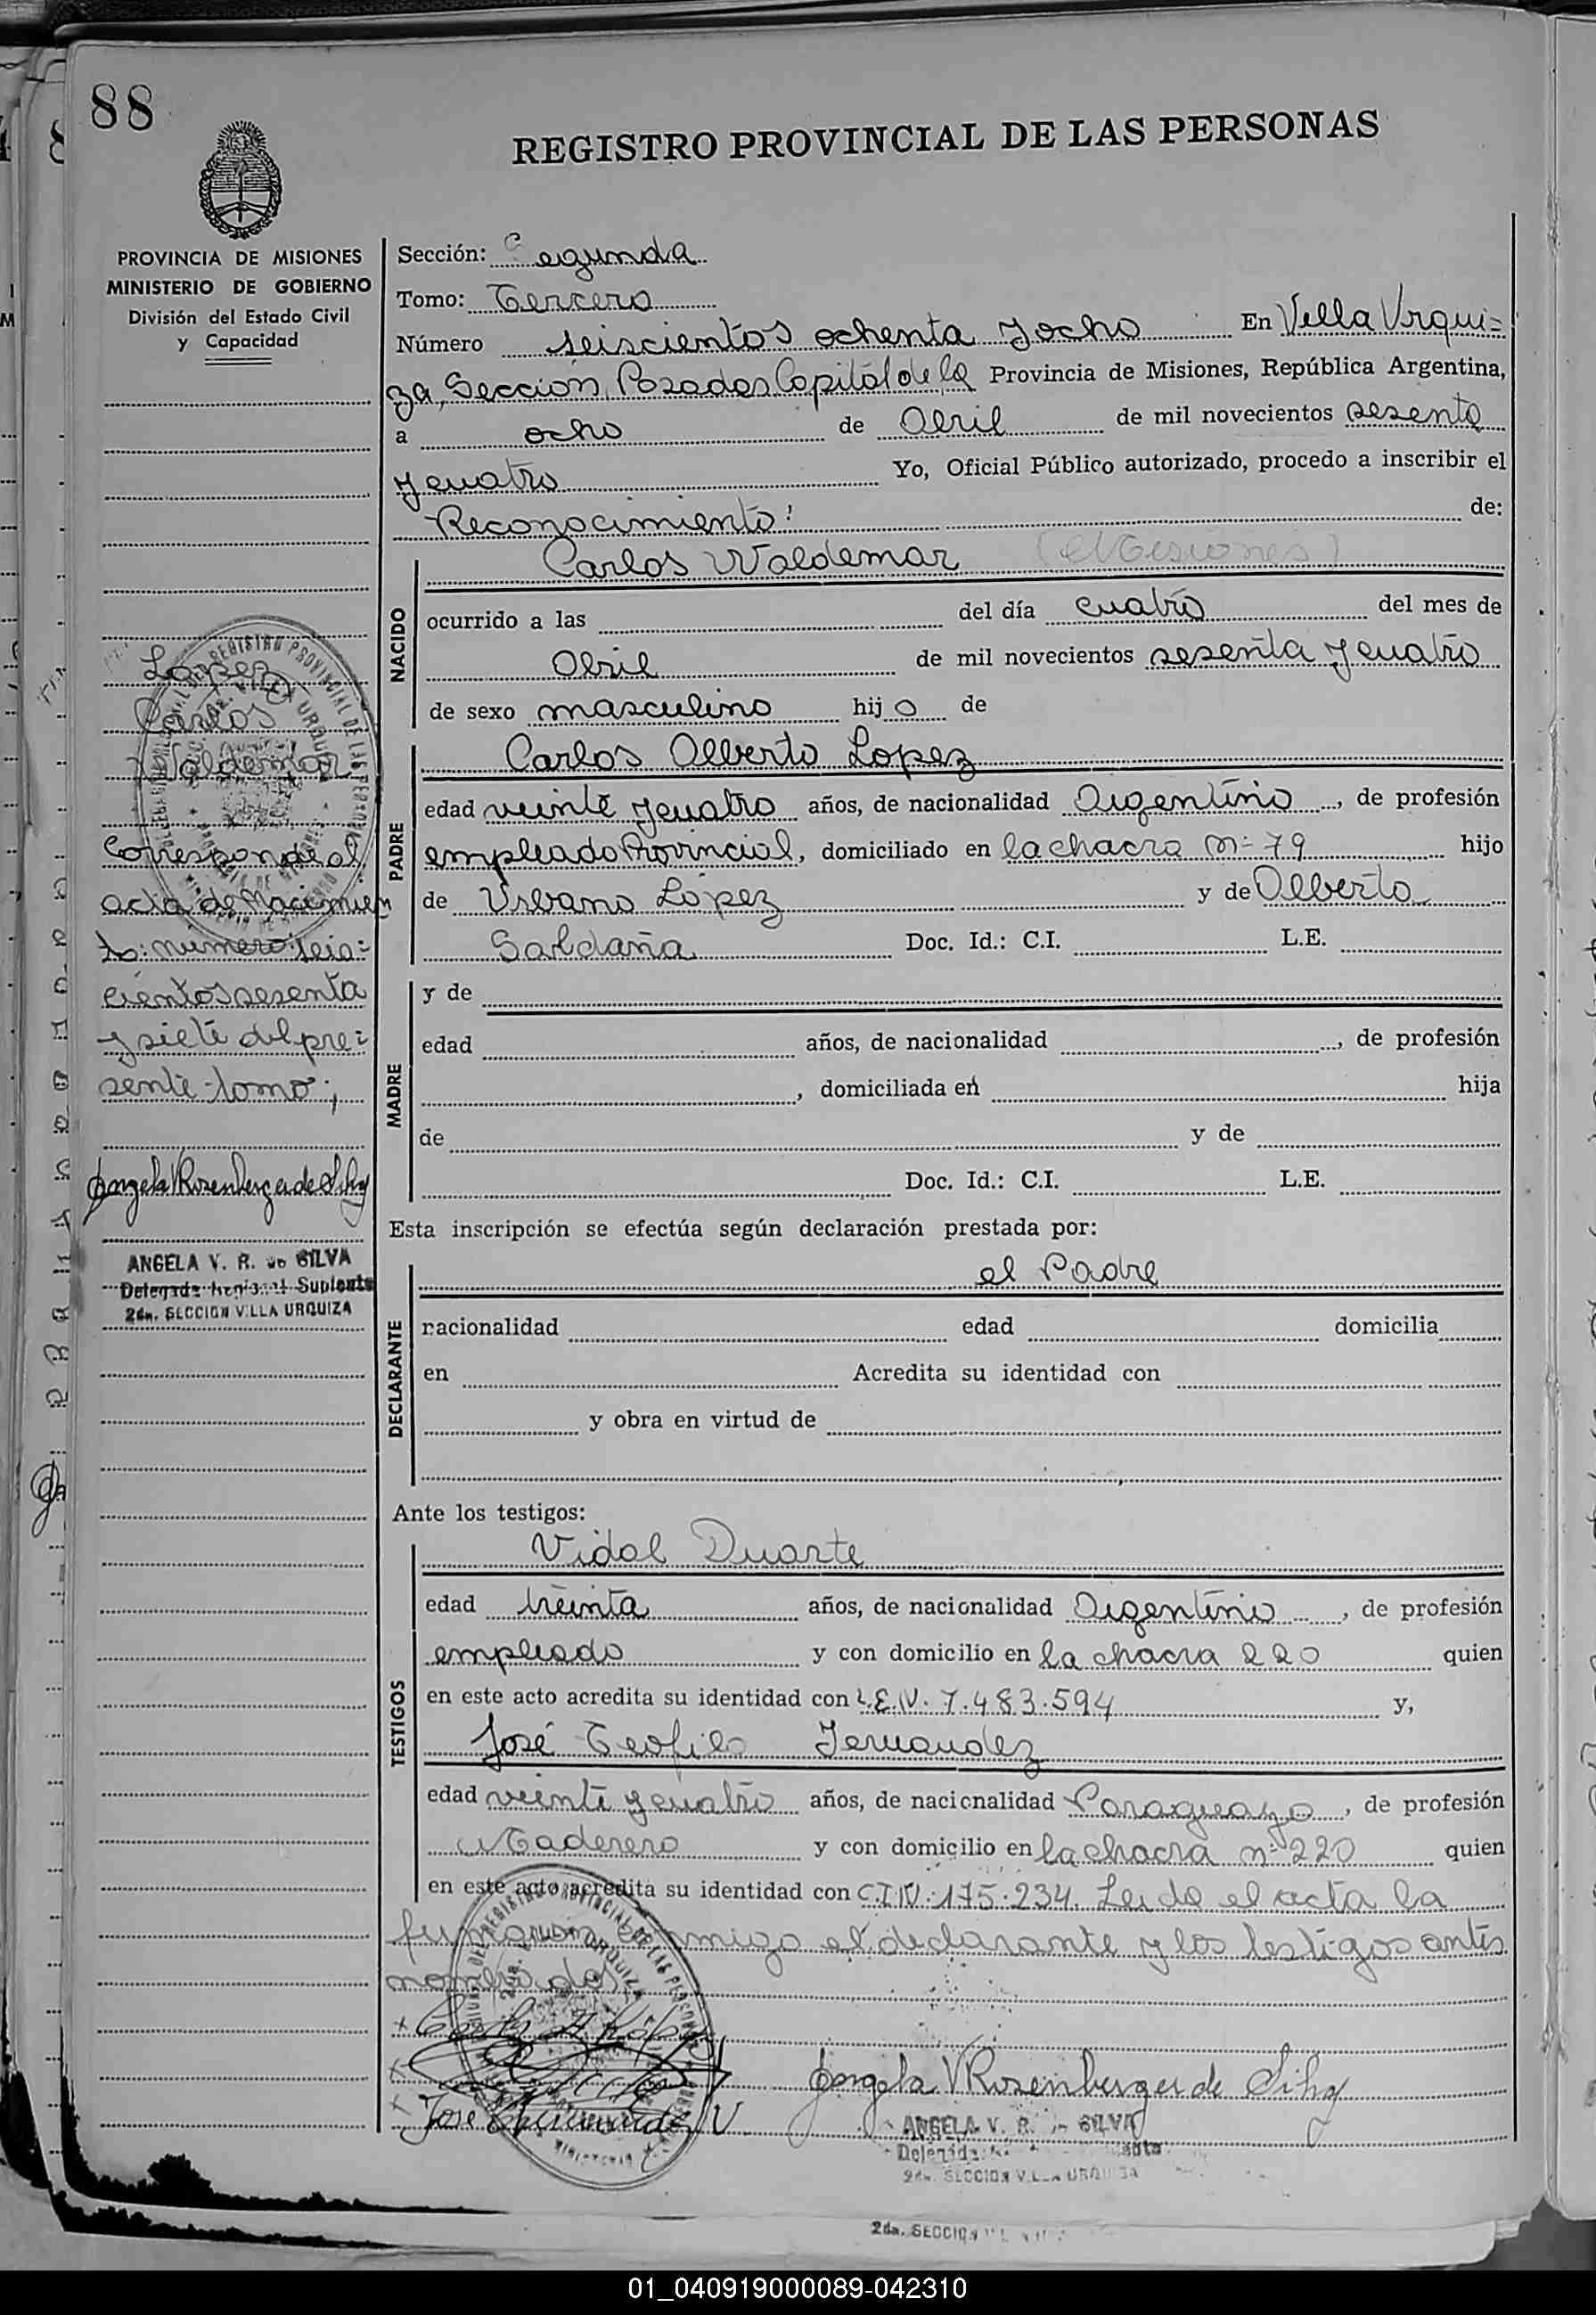 88
REGISTRO PROVINCIAL DE LAS PERSONAS
PROVINCIA DE MISIONES
MINISTERIO DE GOBIERNO
División del Estado Civil
y Capacidad
Lopez
Carlos
Valdemar
Corresponde al
acta de Nacimien
to: número seis=
cientos sesenta
y siete del pre=
sente tomo;
Angela V Rosenberger de Silva
ANGELA V. R. de SILVA
Delegada Regional Suplente
2da. SECCION VILLA URQUIZA
Sección: Segunda
Tomo: Tercero
Número seiscientos ochenta y ocho En Villa Urqui=
za, Sección, Posadas Capital de la Provincia de Misiones, República Argentina,
a ocho de Abril de mil novecientos sesenta
y cuatro Yo, Oficial Público autorizado, procedo a inscribir el
Reconocimiento: de:
Carlos Waldemar (Misiones)
NACIDO
ocurrido a las del día cuatro del mes de
Abril de mil novecientos sesenta y cuatro
de sexo masculino hijo de
PADRE
Carlos Alberto Lopez
edad veinte y cuatro años, de nacionalidad Argentino, de profesión
empleado Provincial, domiciliado en la chacra nº 79 hijo
de Urbano López y de Alberta
Saldaña Doc. Id.: C.I. L.E.
MADRE
y de
edad años, de nacionalidad , de profesión
, domiciliada en hija
de y de
Doc. Id.: C.I. L.E.
Esta inscripción se efectúa según declaración prestada por:
DECLARANTE
el Padre
nacionalidad edad domicilia
en Acredita su identidad con
y obra en virtud de
Ante los testigos:
TESTIGOS
Vidal Duarte
edad treinta años, de nacionalidad Argentino, de profesión
empleado y con domicilio en la chacra 220 quien
en este acto acredita su identidad con L.E.N. 7.483.594 y,
José Teofilo Fernandez
edad veinte y cuatro años, de nacionalidad Paraguayo, de profesión
Maderero y con domicilio en la chacra nº 220 quien
en este acto acredita su identidad con C.I.N: 175.234. Leida el acta la
firmaron conmigo el declarante y los testigos antes
nombrados
Carlos A López
Jose Fernandez V.
Angela V Rosenberger de Silva
ANGELA V. R. de SILVA
Delegada
2da. SECCION VILLA URQUIZA
2da. SECCION
01_040919000089-042310